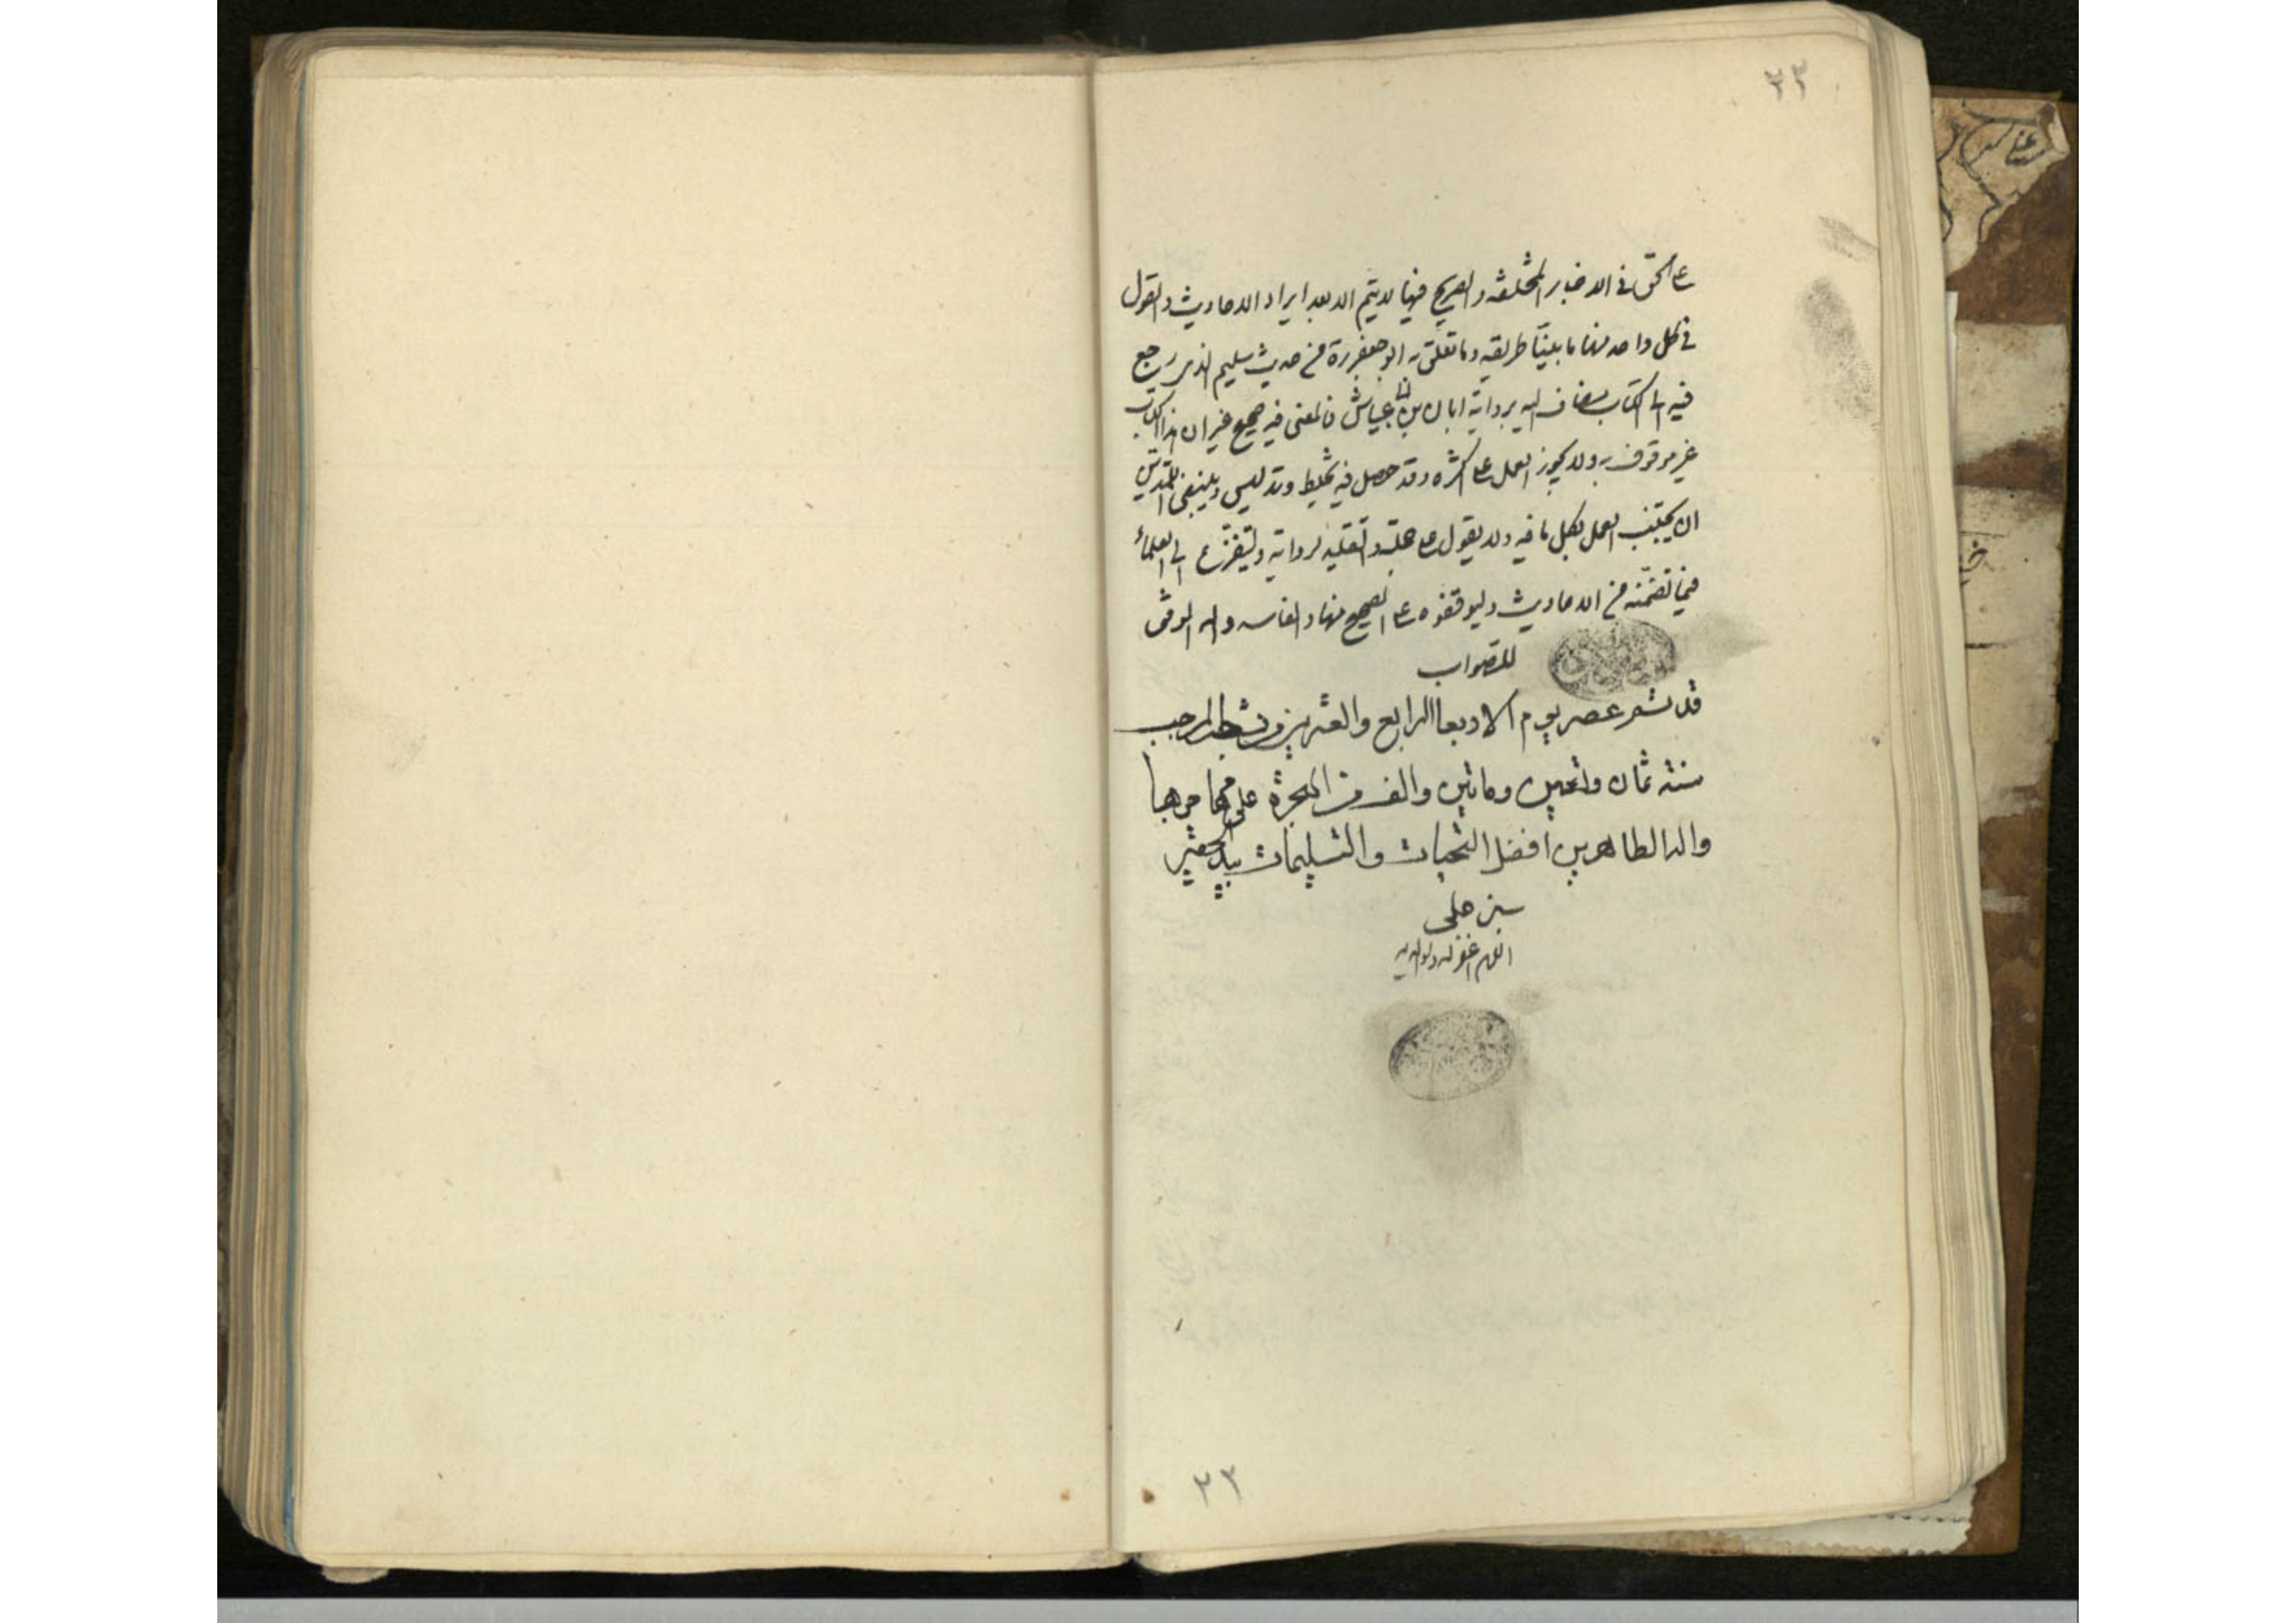 ٣٣
على الحق في الاخبار المختلفة والصريح فيها لا يتم الا بعد ايراد الاحاديث والقول
في كل واحد منها ما بيننا طريقه وما تعلق به ابو جعفر ره من حديث سليم الذي رجع
فيه الى الكتاب المضاف اليه برواية ابان بن ابي عياش فالمعنى فيه صحيح غير ان هذا الكتاب
غير موثوق به ولا يجوز العمل على اكثره وقد حصل فيه تخليط وتدليس وينبغي للمتدين
ان يجتنب العمل بكل ما فيه ولا يعول على جملته والتقليد لرواته وليفزع الى العلماء
فيما تضمنه من الاحاديث وليوقفوه على الصحيح منها والفاسد والله الموفق
للصواب
قد تم عصر يوم الاربعا الرابع والعشرين من شهر رجب المرجب
سنة ثمان وتسعين ومائتين والف من الهجرة على مهاجرها
واله الطاهرين افضل التحيات والتسليمات بيد احقر
اللهم اغفر له ولوالديه
٣٣